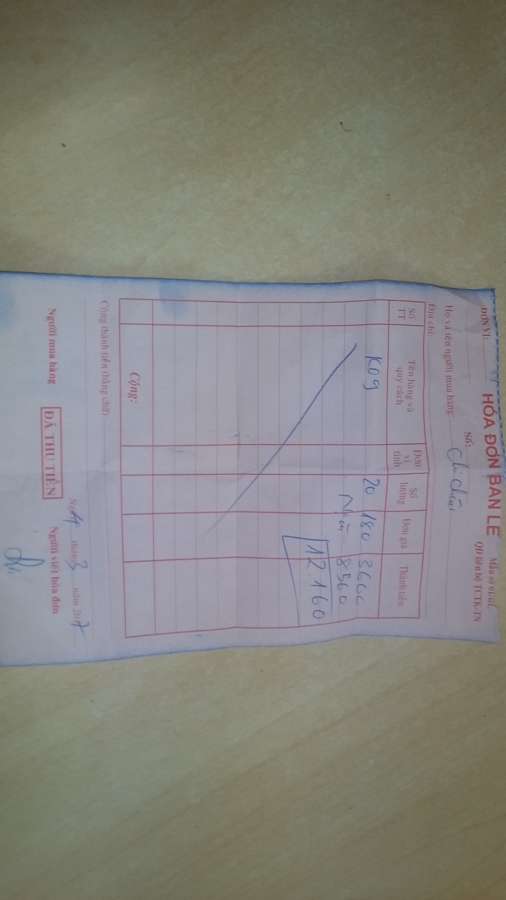 ĐƠN VỊ:
HÓA ĐƠN BÁN LẺ
Mẫu số
QĐ liên bộ TCTK-TN
Số:
Họ và tên người mua hàng:
Địa chỉ:
Số TT
Tên hàng và quy cách
Đơn vị tính
Số lượng
Đơn giá
Thành tiền
K09 20 180 3600
Nợ cũ 8560
12160
Cộng:
Cộng thành tiền (bằng chữ):
Ngày 4 tháng 3 năm 2017
Người mua hàng
ĐÃ THU TIỀN
Người viết hóa đơn